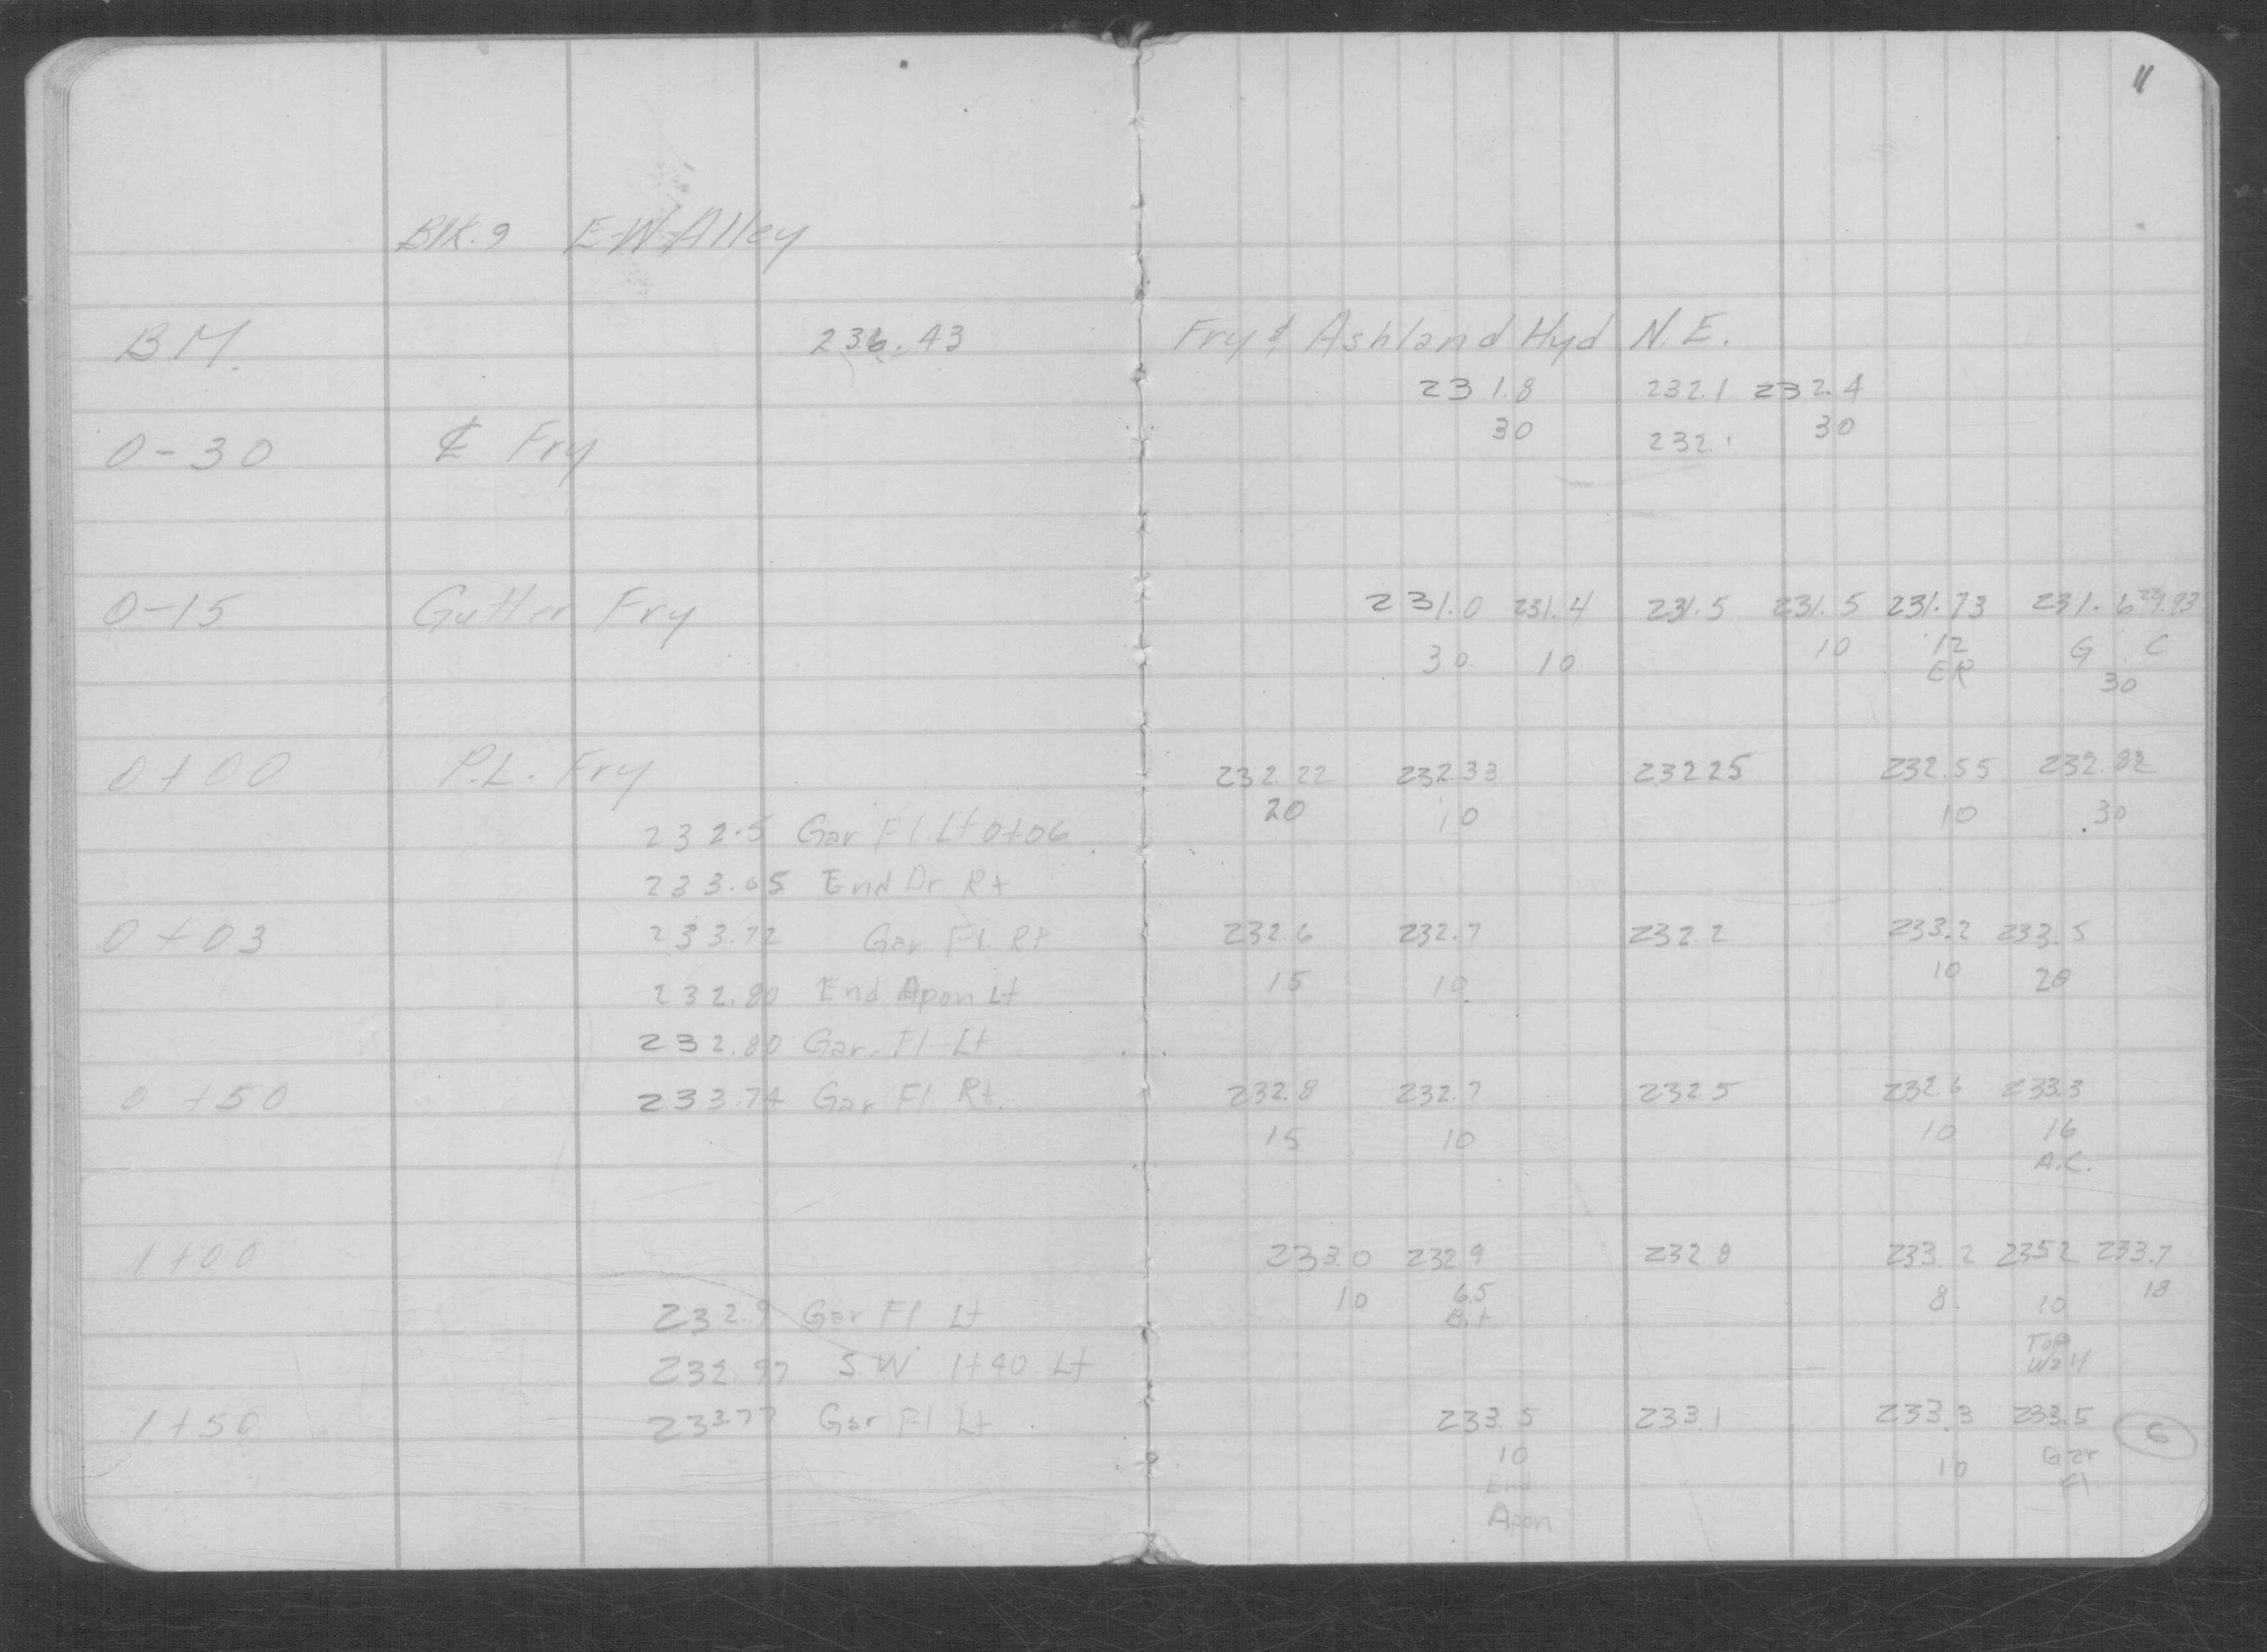 11
Blk. 9 E-W Alley
B M. 236.43 Fry & Ashland Hyd N.E.
231.8 232.1 232.4
0-30 ₵ Fry 30 232. 30
0-15 Gutter Fry 231.0 231.4 231.5 231.5 231.73 231.6
30 10 10 12 G C
ER 30
0+00 P.L. Fry 232.22 232.33 232.25 232.55 232.82
232.5 Gar Fl Lt 0+06 20 10 10 30
233.65 End Dr. Rt
0+03 233.72 Gar Fl. Rt 232.6 232.7 232.2 233.2 233.5
232.80 End Apon Lt 15 10 10 20
232.80 Gar. Fl Lt
0+50 233.74 Gar Fl Rt. 232.8 232.7 232.5 232.6 233.3
15 10 10 16
A.C.
1+00 233.0 232.9 232.8 233.2 235.2 233.7
232.9 Gar Fl Lt 10 6.5 8 10 18
Bit
232.97 S.W 1+40 Lt Top
Wall
1+50 233.77 Gar Fl Lt 233.5 233.1 233.3 233.5 6
10 10 Gar
End Fl
Apon